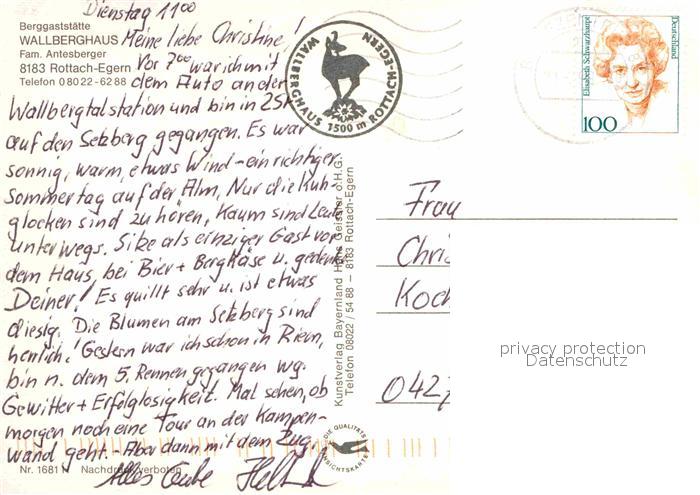 Dienstag 11 00
Berggaststätte
WALLBERGHAUS
Fam. Antesberger
8183 Rottach-Egern
Telefon 08022-6288
Meine liebe Christine!
Vor 7 00 war ich mit
dem Auto an der
Wallbergtalstation und bin in 2 St
auf den Setzberg gegangen. Es war
sonnig, warm, etwas Wind - ein richtiger
Sommertag auf der Alm. Nur die Kuh-
glocken sind zu hören, kaum sind Leute
unterwegs. Sitze als einziger Gast vor
dem Haus, bei Bier + Bergkäse u. gedenke
Deiner! Es quillt sehr u. ist etwas
diesig. Die Blumen am Setzberg sind
herrlich! Gestern war ich schon in Riem,
bin n. dem 5. Rennen gegangen wg.
Gewitter + Erfolglosigkeit. Mal sehen, ob
morgen noch eine Tour an der Kampen-
wand geht. - Aber dann mit dem Zug
Alles Liebe
Nr. 1681 Nachdruck verboten
WALLBERGHAUS 1500 m ROTTACH-EGERN
Kunstverlag Bayernland Hans Geissler o.H.G.
Telefon 08022/5488 – 8183 Rottach-Egern
DIE QUALITÄTS
ANSICHTSKARTE
Elisabeth Schwarzhaupt
Deutschland
100
Frau
Chri
Koch
042
privacy protection
Datenschutz